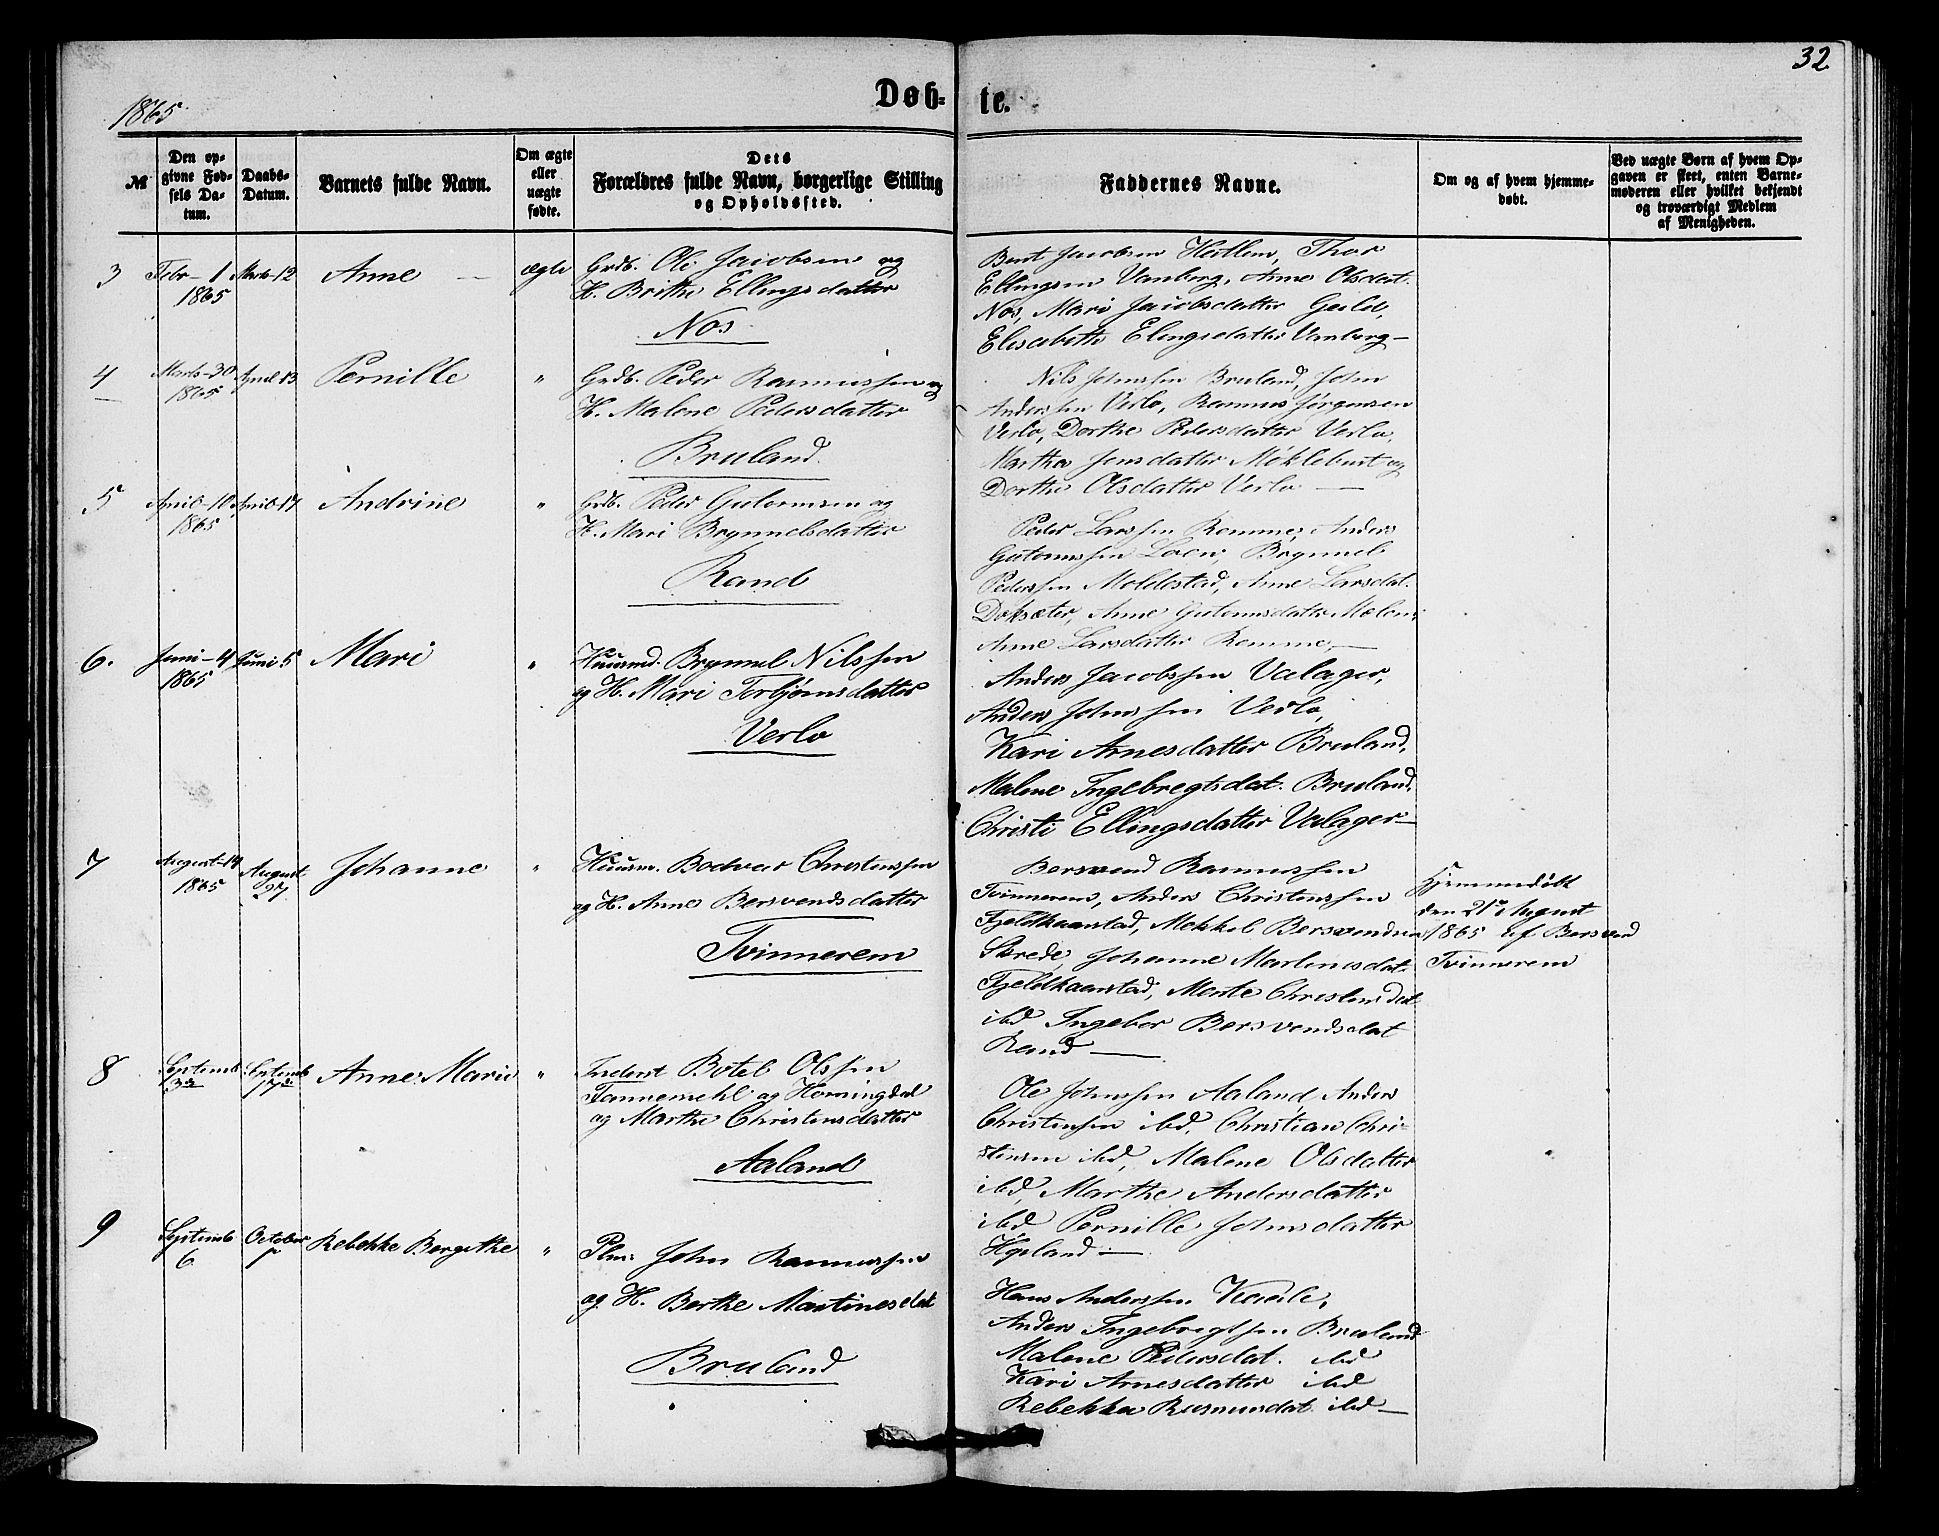 32
1865
Døb-
te.
№
Den op-
givne Fød-
sels Da-
tum.
Daabs-
Datum.
Barnets fulde Navn.
Om ægte
eller
uægte
fødte.
Dets
Forældres fulde Navn, borgerlige Stilling
og Opholdssted.
Faddernes Navne.
Om og af hvem hjemme-
døbt.
Ved uægte Børn af hvem Op-
gaven er skeet, enten Barne-
moderen eller hvilket bekjendt
og troværdigt Medlem
af Menigheden.
3
Febr - 1
1865
Marts-12
Anne
ægte
Grdb. Ole Jacobsen og
H. Brithe Ellingsdatter
Nos
Bent Jacobsen Heitlem, Thor
Ellingsen Vanberg, Anne Olsdat.
Nos, Mari Jacobsdatter Guld,
Elisabeth Elingsdatter Vanberg -
4
Marts-30
1865
April 13
Pernille
"
Grdb. Peder Rasmussen og
H. Malene Pedersdatter
Bruland
Nils Johnssen Bruland, John
Anderssen Verlo, Rasmus Jørgensen
Verlo, Dorthe Pedersdatter Verlo,
Marthe Jensdatter Møklebust og
Dorthe Olsdatter Verlo -
5
April-10
1865
April-17
Andrine
"
Grdb. Peder Gutormsen og
H. Mari Brynnelsdatter
Rand
Peder Larssen Romme, Anders
Gutormssen Loen, Brynnel
Pederssen Moldestad, Anne Larsdat.
Døksæter, Anne Gutormsdatter Melem,
Anne Larsdatter Romme, -
6.
Juni - 4
1865
Juni 5
Mari
"
Huusmd. Brynnel Nilssen
og H. Mari Torbjørnsdatter
Verlo
Anders Jacobssen Valager,
Anders Johnssen Verlo,
Kari Arnesdatter Bruland,
Malene Ingebregtsdat. Bruland,
Christi Ellingsdatter Valager -
7
August-14
1865
August
27
Johanne
"
Huusm. Bodvar Christenssen
og H. Anne Bersvendsdatter
Tvinnerem
Bersvend Rasmussen
Tvinnerem, Anders Christenssen
Fjeldkaarstad, Mekkel Bersvendsen
Skrede, Johanne Martinesdat.
Fjeldkaarstad, Marte Christensdat
ibd, Ingebor Bersvendsdat
Rand -
Hjemmedøbt
den 21de August
1865 af Bersvend
Tvinnerem
8
Septemb
13de
Septemb
17de
Anne Marie
"
Inderst Botel Olssen
Tannemehl og Horningdal
og Marthe Christensdatter
Aaland
Ole Johnssen Aaland, Anders
Christensen ibd, Christian Chri-
stensen ibd, Malene Olsdatter
ibd, Marthe Andersdatter
ibd Pernille Johnsdatter
Hjeland -
9
Septemb
6
October
Rebekke Bergithe
"
Plm: John Rasmussen
og H. Berthe Martinesdat
Bruland
Hans Anderssen
Anders Ingebregtsen Bruland
Malene Pedersdat. ibd
Kari Arnesdatter ibd
Rebekka Rasmusdat. ibd -